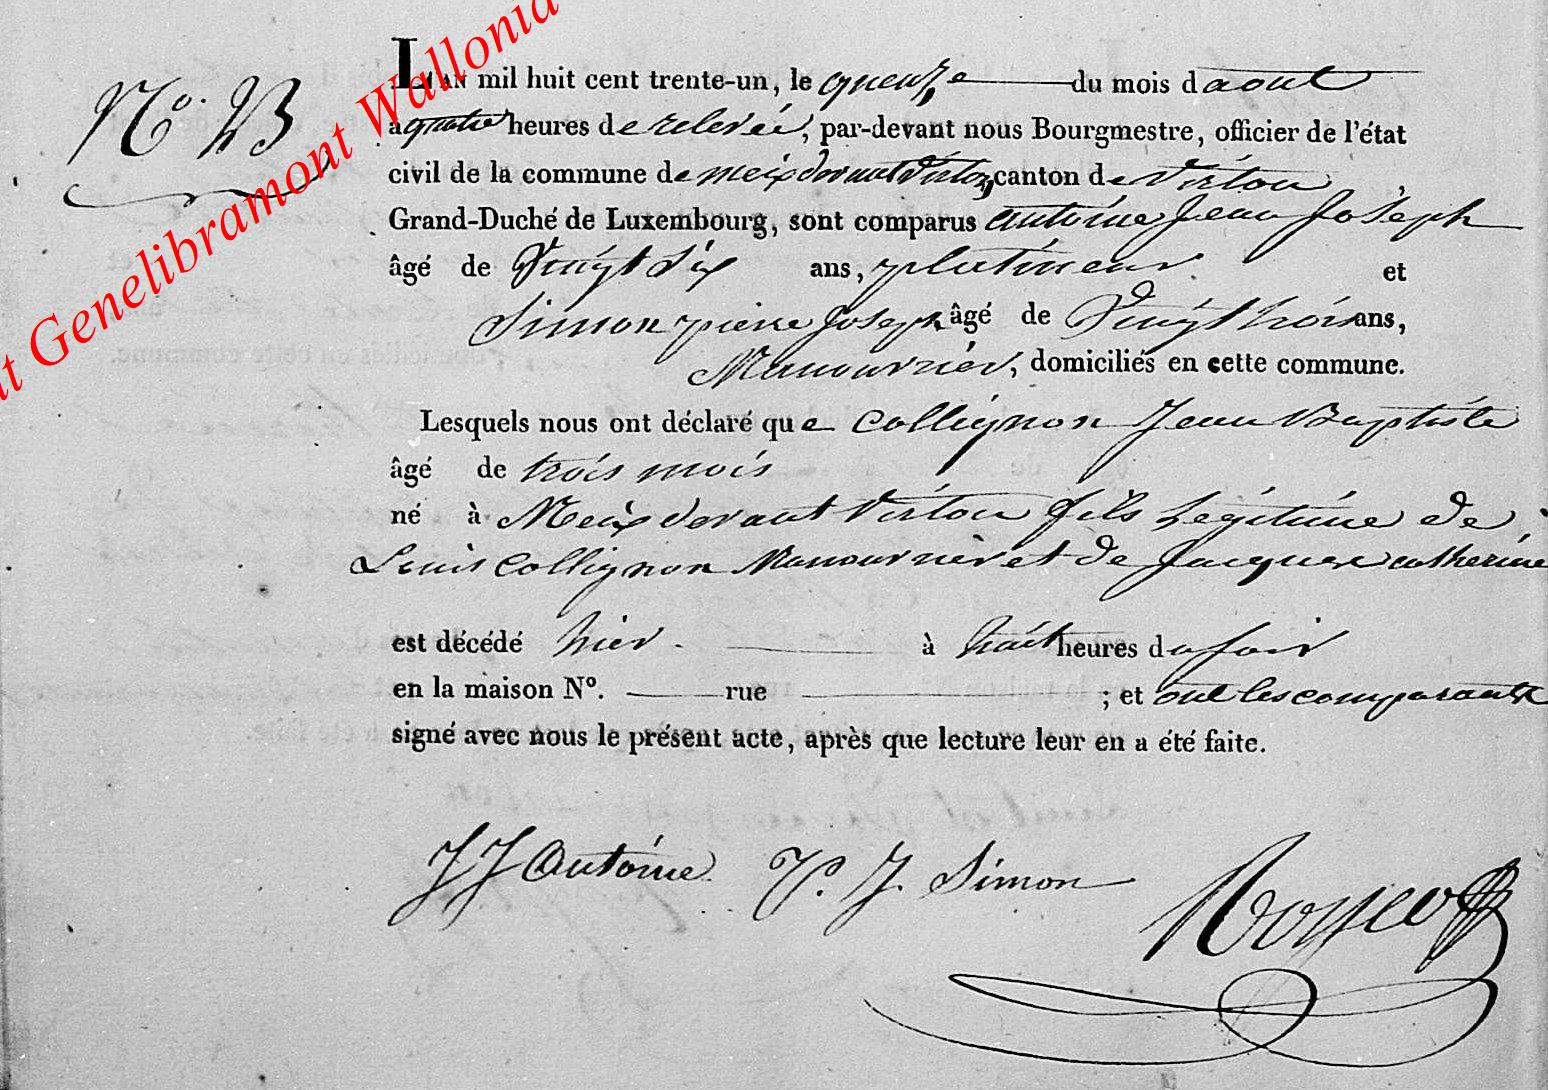 at Genelibramont Wallonia
No. 23
L'AN mil huit cent trente-un, le quenze du mois daout
à quatre heures de relevée, par-devant nous Bourgmestre, officier de l'état
civil de la commune de meix devant virton, canton de virton
Grand-Duché de Luxembourg, sont comparus antoine Jean Joseph
âgé de Vingt Six ans, platineur et
Simon pierre Joseph âgé de Vingt trois ans,
Manouvrier, domiciliés en cette commune.
Lesquels nous ont déclaré que Collignon Jean Baptiste
âgé de trois mois
né à Meix devant Virton fils Légitime de
Louis Collignon Manouvrier et de Jacques catherine
est décédé hier à huit heures du soir
en la maison No. rue ; et ont les comparants
signé avec nous le présent acte, après que lecture leur en a été faite.
JJ Antoine P. J. Simon